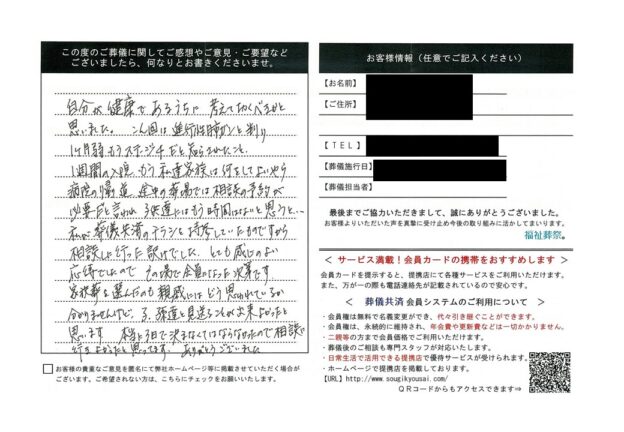 この度のご葬儀に関してご感想やご意見・ご要望など
ございましたら、何なりとお書きくださいませ。
自分が健康であるうちに 考えておくべきかと
思いました。こん回は進行性肺ガンと判り
1ヶ月弱、もうステージ4だと知らされたこと、
1週間の入院、もう私達家族は何をしてよいやら
病院の帰道、途中の葬場では相談の予約が
必要だと言われ 子供達にはもう時間はないと思うと…
私が葬儀共済のチラシを持参していたものですから
相談しに行った訳でした。とても感じのよい
応待でしたので その場で会員になった次第です
家族葬を選んだのも親戚にはどう思われているか
分かりませんけど、子、孫達と見送ることが出来よかったと
思います 本当に3日で決まなくてはならなかったので相談に
行きよかったと思ってます。ありがとうございました
□ お客様の貴重なご意見を匿名にて弊社ホームページ等に掲載させていただく場合が
ございます。ご希望されない方は、こちらにチェックをお願いいたします。
お客様情報（任意でご記入ください）
【お名前】
【ご住所】
【ＴＥＬ】
【葬儀施行日】
【葬儀担当者】
最後までご協力いただきまして、誠にありがとうございます。
お客様よりいただいた声を真摯に受け止め今後の取り組みに活かしてまいります。
福祉葬祭。
＜ サービス満載！会員カードの携帯をおすすめします ＞
会員カードを提示すると、提携店にて各種サービスをご利用いただけます。
また、万が一の際も電話連絡先が記載されているので安心です。
＜ 葬儀共済 会員システムのご利用について ＞
・会員権は無料で名義変更ができ、代々引き継ぐことができます。
・会員権は、永続的に維持され、年会費や更新費などは一切かかりません。
・二親等の方まで会員価格でご利用いただけます。
・葬儀後のご相談も専門スタッフが対応いたします。
・日常生活で活用できる提携店で優待サービスが受けられます。
・ホームページで提携店を掲載しております。
【URL】http://www.sougikyousai.com/
ＱＲコードからもアクセスできます⇒